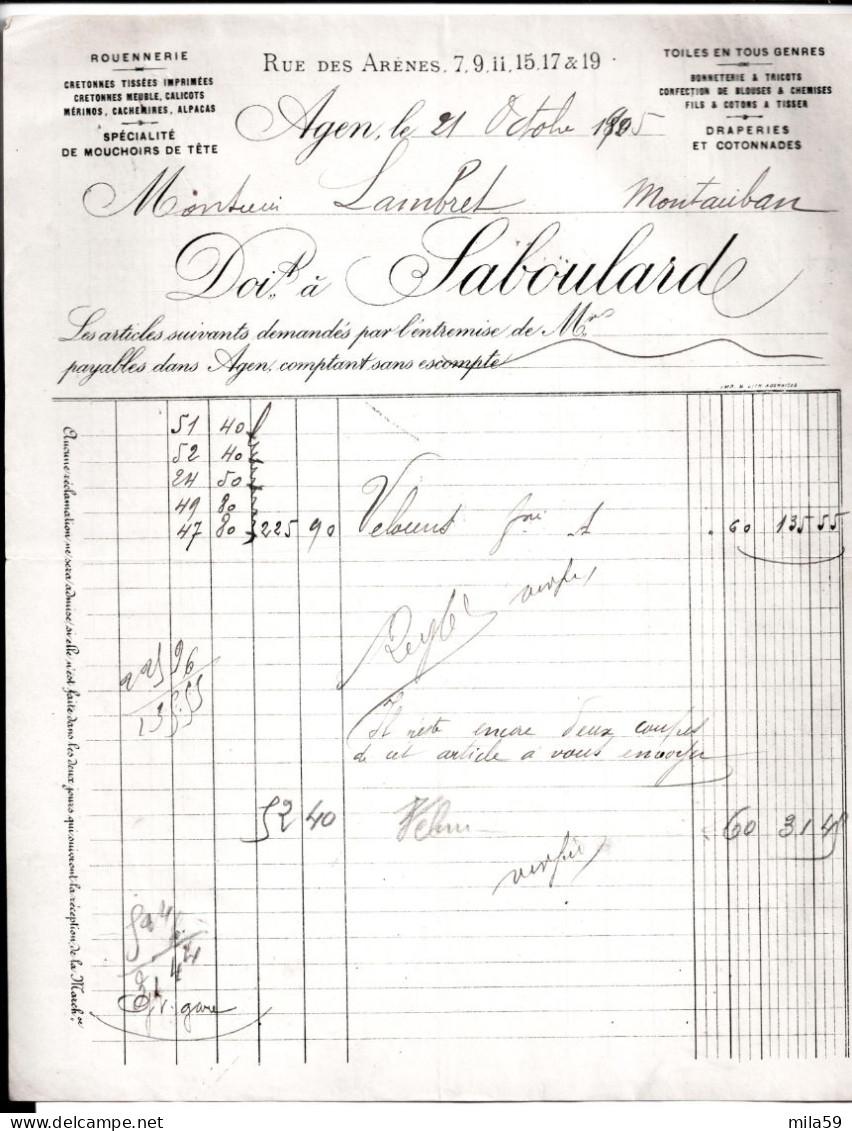 ROUENNERIE
CRETONNES TISSÉES IMPRIMÉES
CRETONNES MEUBLE, CALICOTS
MÉRINOS, CACHEMIRES, ALPACAS
SPÉCIALITÉ
DE MOUCHOIRS DE TÊTE
RUE DES ARÈNES, 7, 9, 11, 15, 17 & 19
TOILES EN TOUS GENRES
BONNETERIE & TRICOTS
CONFECTION DE BLOUSES & CHEMISES
FILS & COTONS A TISSER
DRAPERIES
ET COTONNADES
Agen, le 21 Octobre 1905
Monsieur Lambret Montauban
Doit à Saboulard
Les articles suivants demandés par l'entremise de Mr
payables dans Agen, comptant sans escompte
IMP. & LITH. AGENAISES
51 40
52 40
24 50
49 80
47 80 225 90 Velours 60 135 55
verifié
225 96
135.55
Il reste encore deux coupes
de cet article à vous envoyer
52 40 Velours 60 31 4
verifié
52 4
6
31 44
gare
Aucune réclamation ne sera admise, si elle n'est faite dans les deux jours qui suivront la réception de la March.se
mila59